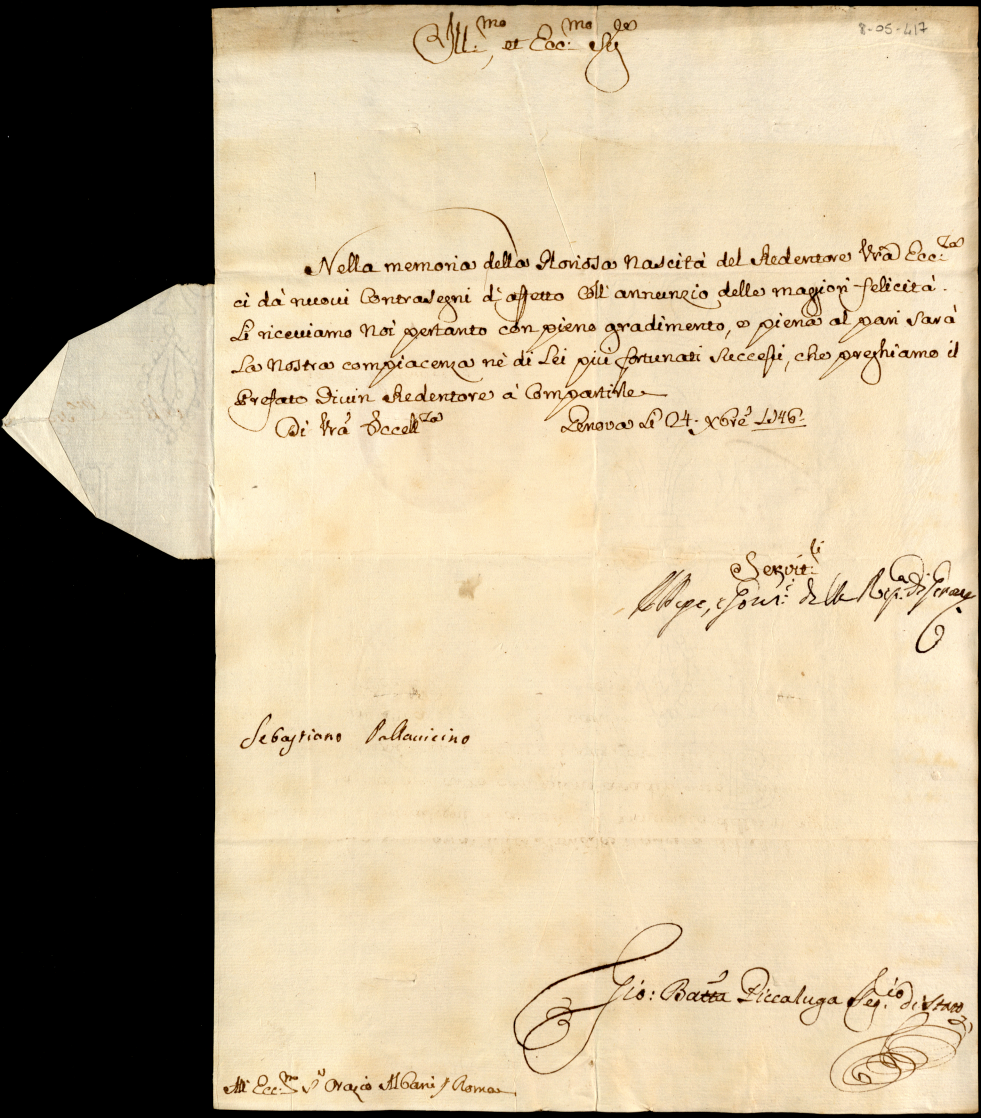 Ill:mo, et Ecc:mo Sig.re
8-05-417
Nella memoria della Gloriosa Nascità del Redentore Vrã Ecc:za
ci dà nuovi Contrasegni di affetto Coll' annunzio delle magiori felicità.
Li riceviamo Noi pertanto con pieno gradimento, e piena al pari sarà
La Nostra compiacenza nè di Lei piu fortunati Successi, che preghiamo il
Prefato Divin Redentore à Compartirle
Di Vrã Eccell.za
Genova Li 24. Xbrẽ 1746.
Servit.li
Il Doge, e Gov.ri della Rep.ca di Genova
Sebastiano Pallavicino
Gio: Batta Piccaluga Seg.rio di Stato
All' Ecc.mo S.r Orazio Albani Roma